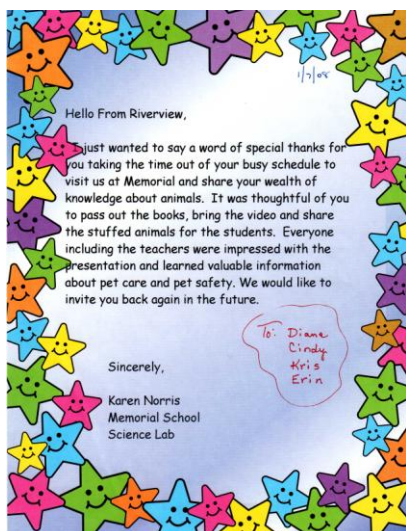 1/7/08
Hello From Riverview,
I just wanted to say a word of special thanks for
you taking the time out of your busy schedule to
visit us at Memorial and share your wealth of
knowledge about animals. It was thoughtful of you
to pass out the books, bring the video and share
the stuffed animals for the students. Everyone
including the teachers were impressed with the
presentation and learned valuable information
about pet care and pet safety. We would like to
invite you back again in the future.
To: Diane
Cindy
Kris
Erin
Sincerely,
Karen Norris
Memorial School
Science Lab